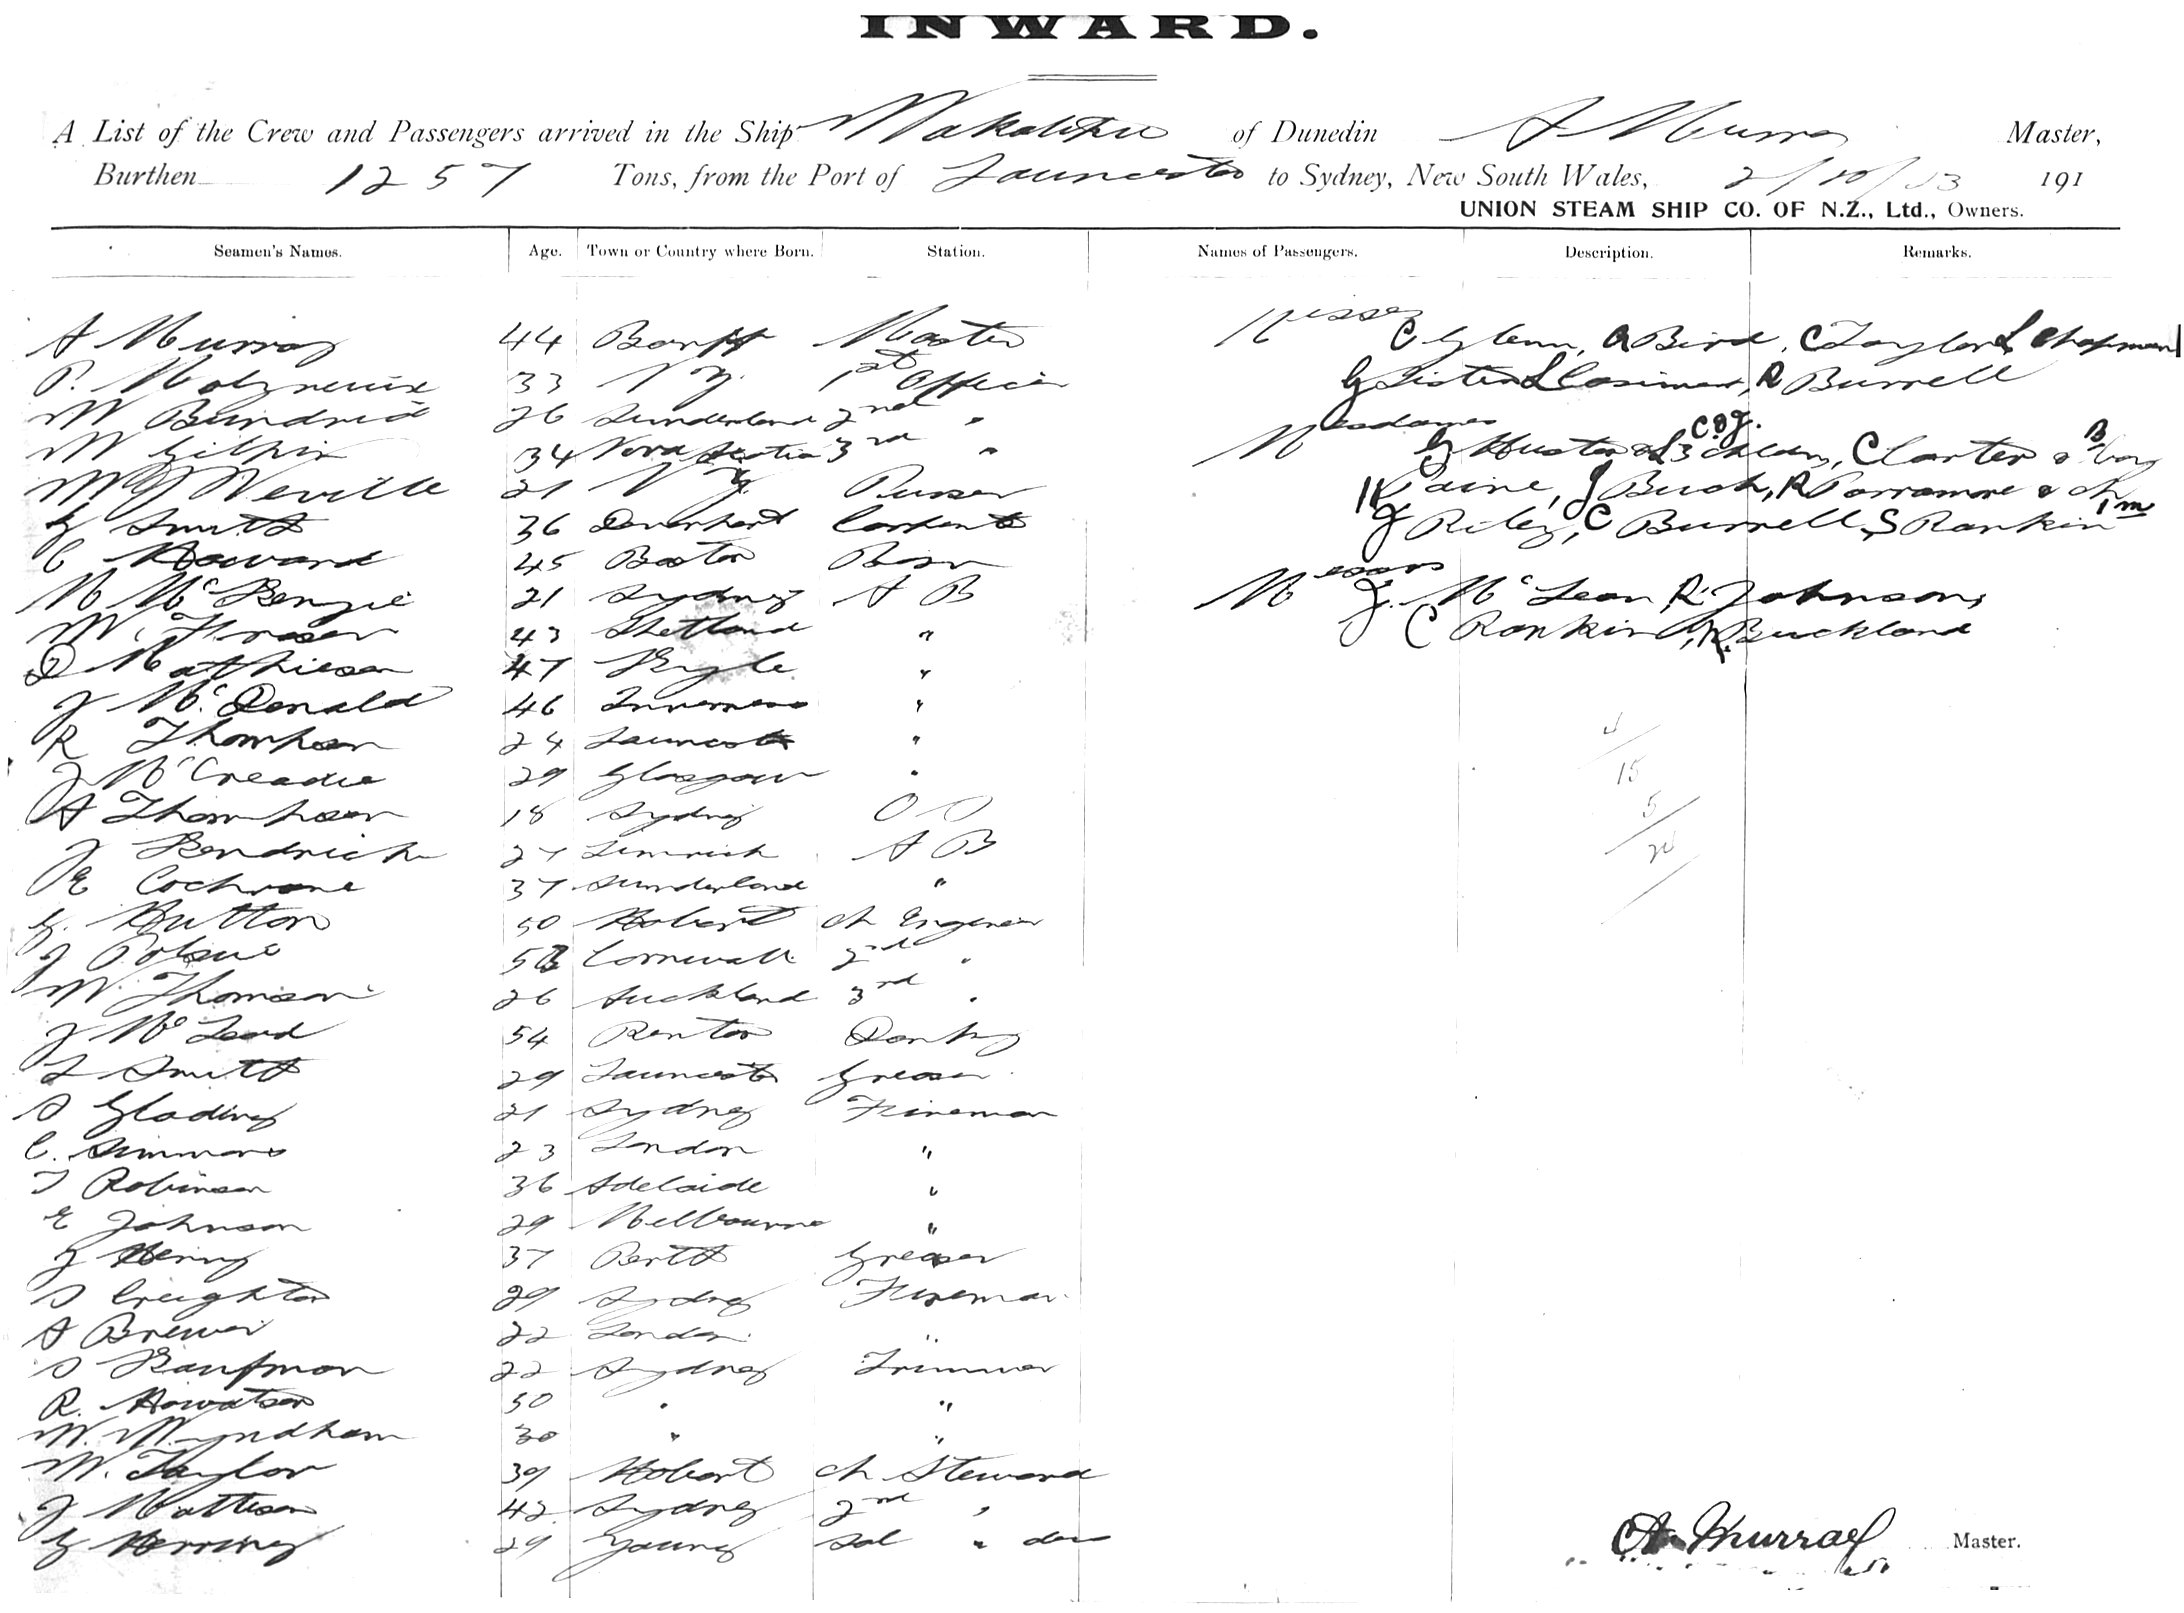 INWARD.
A List of the Crew and Passengers arrived in the Ship of Dunedin A Murray Master,
Burthen 1257 Tons, from the Port of Launceston to Sydney, New South Wales, 2/10/13 191
UNION STEAM SHIP CO. OF N.Z., Ltd., Owners.
Seamen's Names. Age. Town or Country where Born. Station. Names of Passengers. Description. Remarks.
A Murray 44 Banff Master
P. Molyneux 33 N Z. 1st Officer
W 26 Sunderland 2nd "
W Gilpin 34 Nova Scotia 3rd "
W J Neville 21 N Z. Purser
G Smith 36 Devenport Carpenter
C Howard 45 Boston Bosn
N McKenzie 21 Sydney A B
W. Fraser 43 Shetland "
D Mathieson 47 "
J McDonald 46 Inverness "
R Thompson 24 Launceston "
J McCreadie 29 Glasgow "
A Thompson 18 Sydney O S
J Kendrick 27 Limrick A B
E Cochrane 37 Sunderland "
G. Hutton 50 Hobart ch Engineer
J Polsue 53 Cornwall 2nd "
W. Thomson 26 Auckland 3rd "
J McLeod 54 Renton Donky
L Smith 29 Launceston Greaser
S Glading 21 Sydney Fireman
C. Simmons 23 London "
T Robinson 36 Adelaide "
E Johnson 29 Melbourne "
J Henry 37 Perth Greaser
S Creighton 29 Sydney Fireman
A Brewer 22 London "
S Kaufman 22 Sydney Trimmer
R. Howatson 50 " "
W. Wyndham 30 " "
W. Taylor 39 Hobart ch Steward
J Mattison 42 Sydney 2nd "
G Herring 29 Young Sal "
Messrs
C Glenn, A Bird, C Taylor, L Chapman
G Lister, L R Burrell
Mesdames C & J.
G Huston & 3 chldn, C Carter & boy B
H Paine, J Buch, R Parramore & ch 1m
J Riley, C Burrell, S Rankin
Messrs
J. McLean, R Johnson,
C Rankin, R. Buckland
15
5
20
A Murray Master.